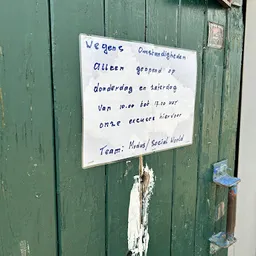 Wegens Omstandigheden
Alleen geopend op
donderdag en zaterdag
van 10.00 tot 17.00 uur
onze excuses hiervoor
Team: Modus/ Social World